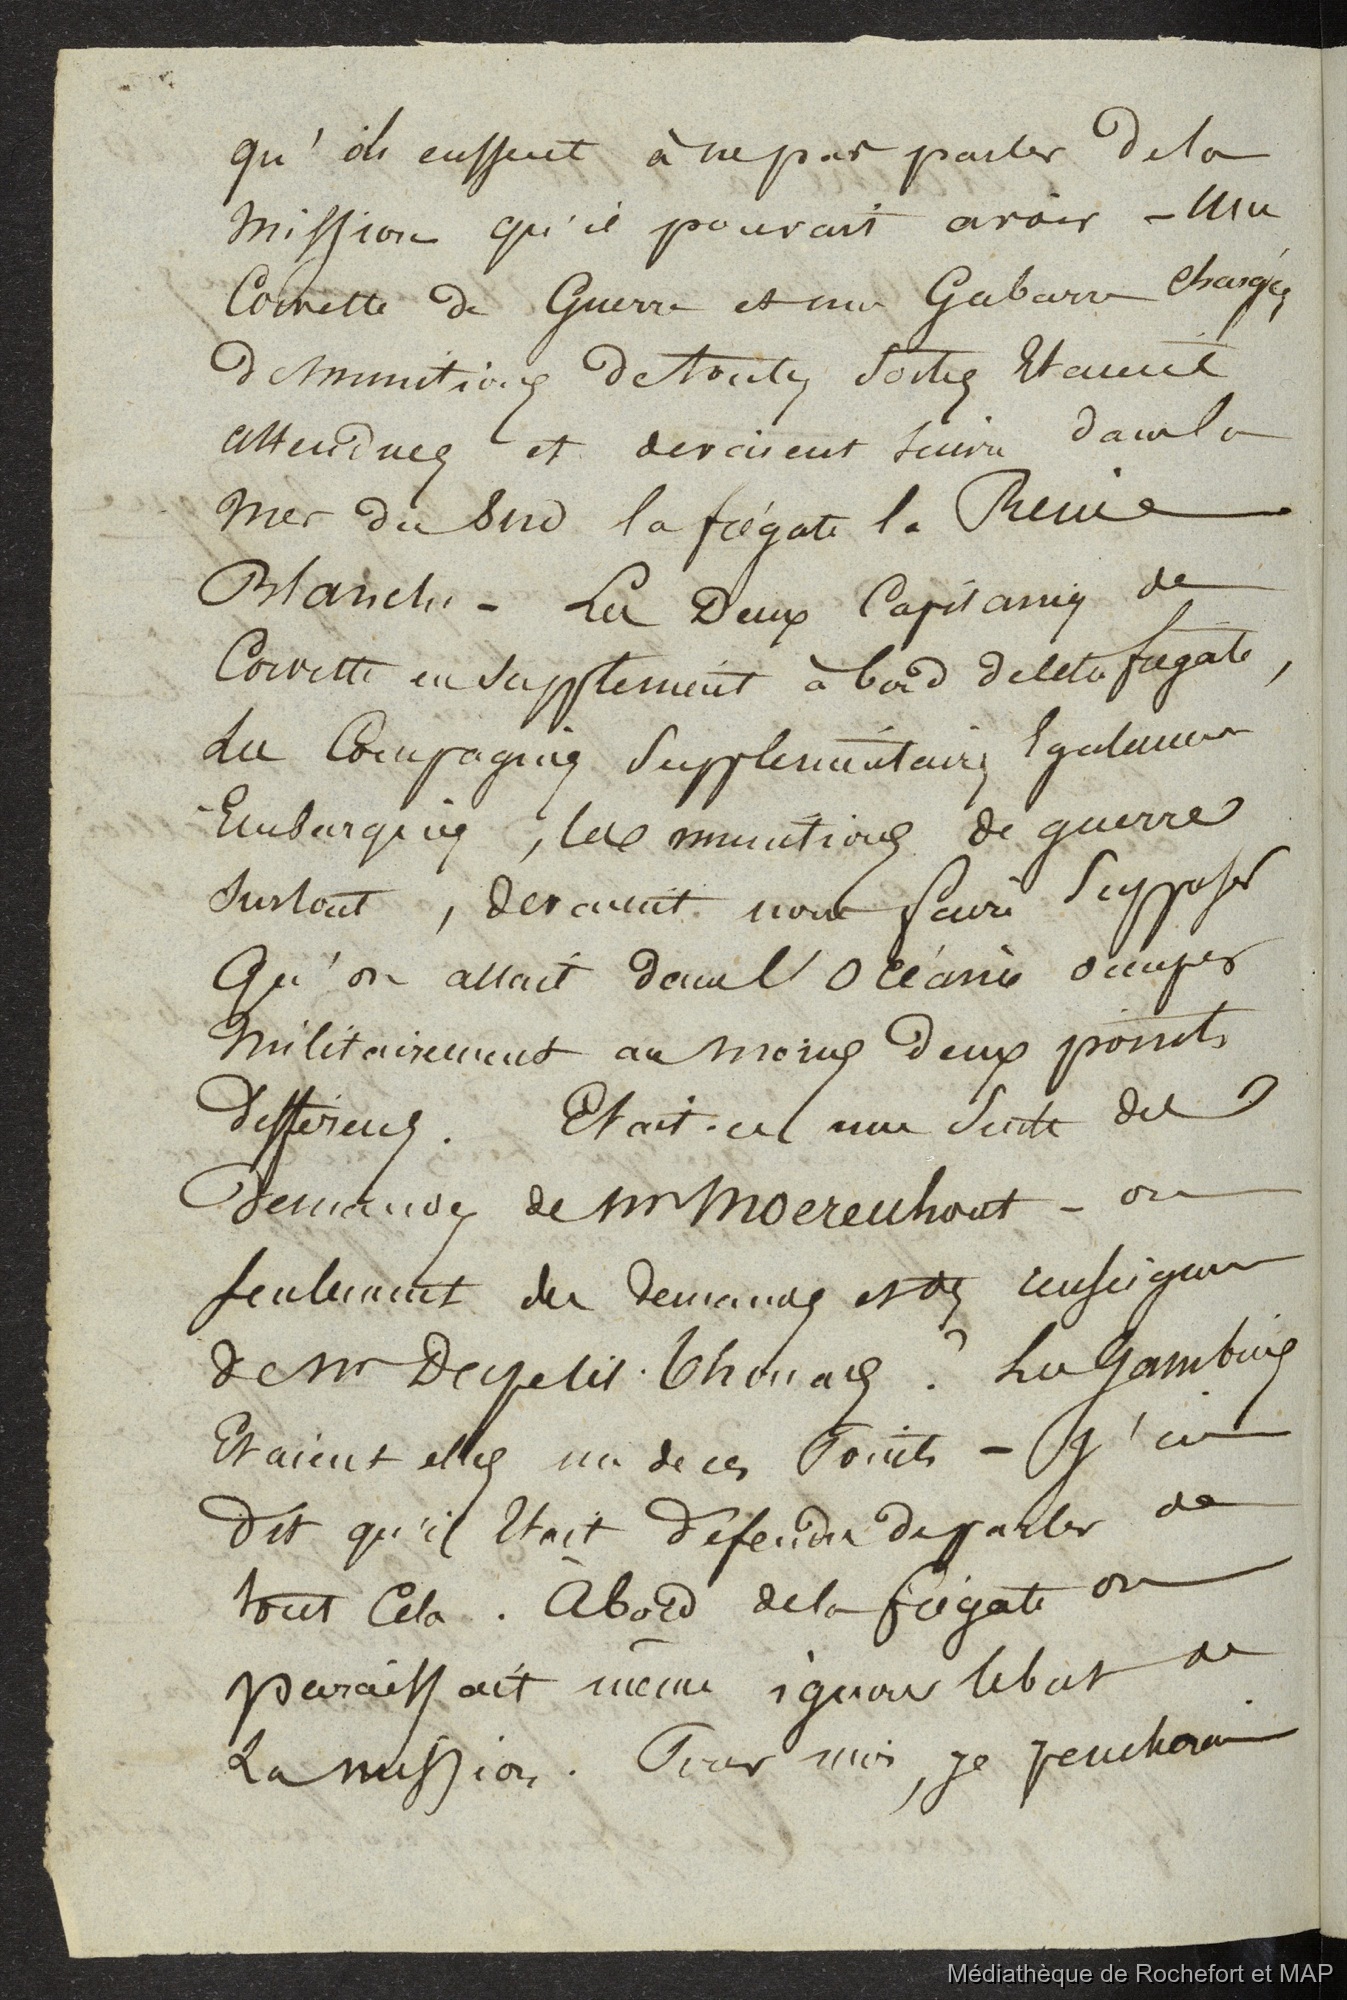 qu'ils eussent à ne pas parler de la
mission qu'il pouvait avoir – une
Corvette de Guerre et une Gabarre chargées
de munitions de toutes sortes Etaient
attendues et devaient suivre dans la
mer du Sud la frégate la Reine
Blanche – Les Deux Capitaines de
Corvette en supplement à bord de cette frégate,
des Compagnies Supplementaires Egalement
Embarquées, les munitions de guerre
surtout, devaient nous faire Supposer
Qu'on allait dans l'Océanie occuper
Militairement au moins Deux points
differens. Etait-ce une Suite des
Demandes de Mr Moerenhout – ou
seulement des demandes et des renseignem
de Mr Dupetit-Thouars? Les Gambiers
Etaient elles un de ces Points – J'ai
dit qu'il Etait défendu de parler de
tout Cela. À bord de la frégate on
paraissait même ignorer le but de
La mission. Pour moi, je pencherai
Médiathèque de Rochefort et MAP